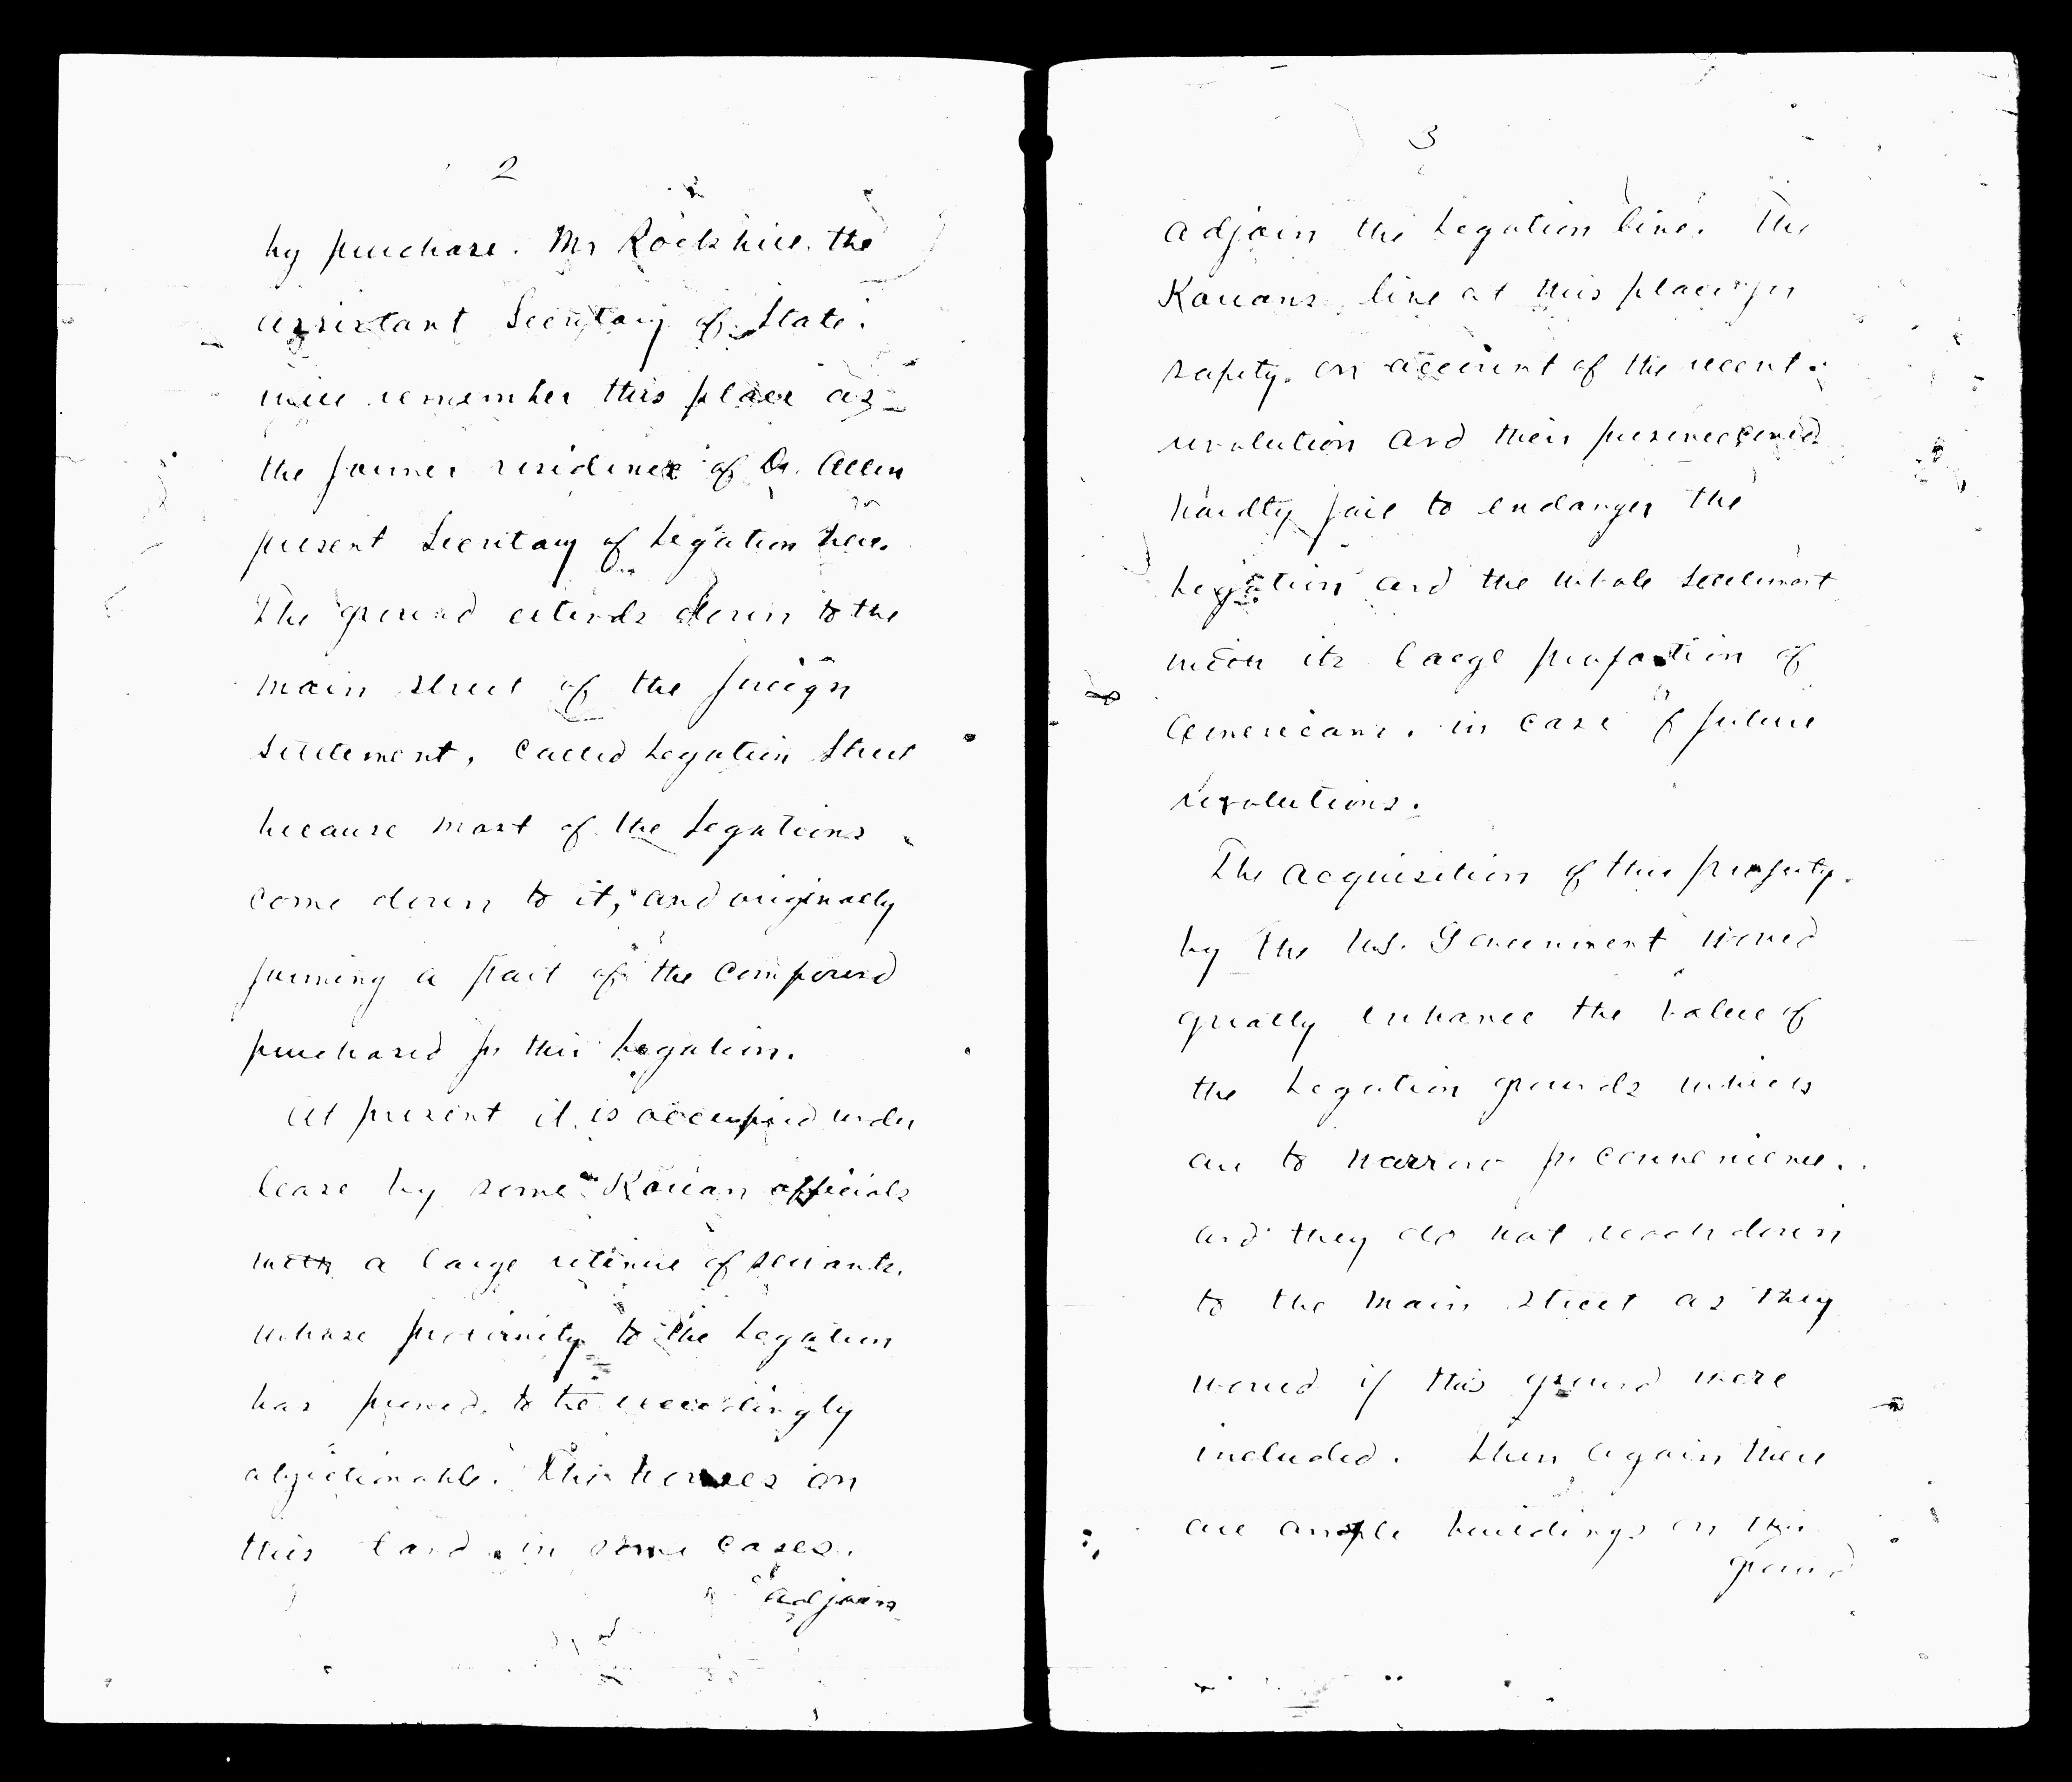 2
by purchase. Mr Rockhill, the
assistant Secretary of State,
will remember this place as
the former residence of Dr. Allen
present Secretary of Legation here.
The ground extends down to the
main street of the foreign
Settlement, called Legation Street
because most of the Legations
come down to it, and originally
forming a part of the compound
purchased for this Legation.
At present it is occupied under
lease by some Korean officials
with a large retinue of servants,
whose proximity to the Legation
has proved to be exceedingly
objectionable. Their houses on
this land in some cases,
adjoin
3
adjoin the Legation line. The
Koreans live at this place for
safety, on account of the recent
revolution and their presence
hardly fail to endanger the
Legation and the whole Settlement
with its large proportion of
Americans, in case of future
revolutions.
The acquisition of this property,
by the U.S. Government would
greatly enhance the value of
the Legation grounds which
are to narrow for convenience,
and they do not reach down
to the main street as they
would if this ground were
included. Then again there
are ample buildings on this
ground